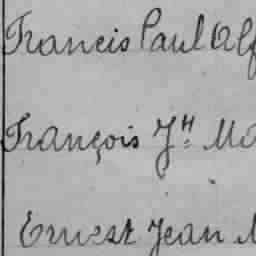 Francis Paul Alf
François Jh Ma
Ernest Jean M